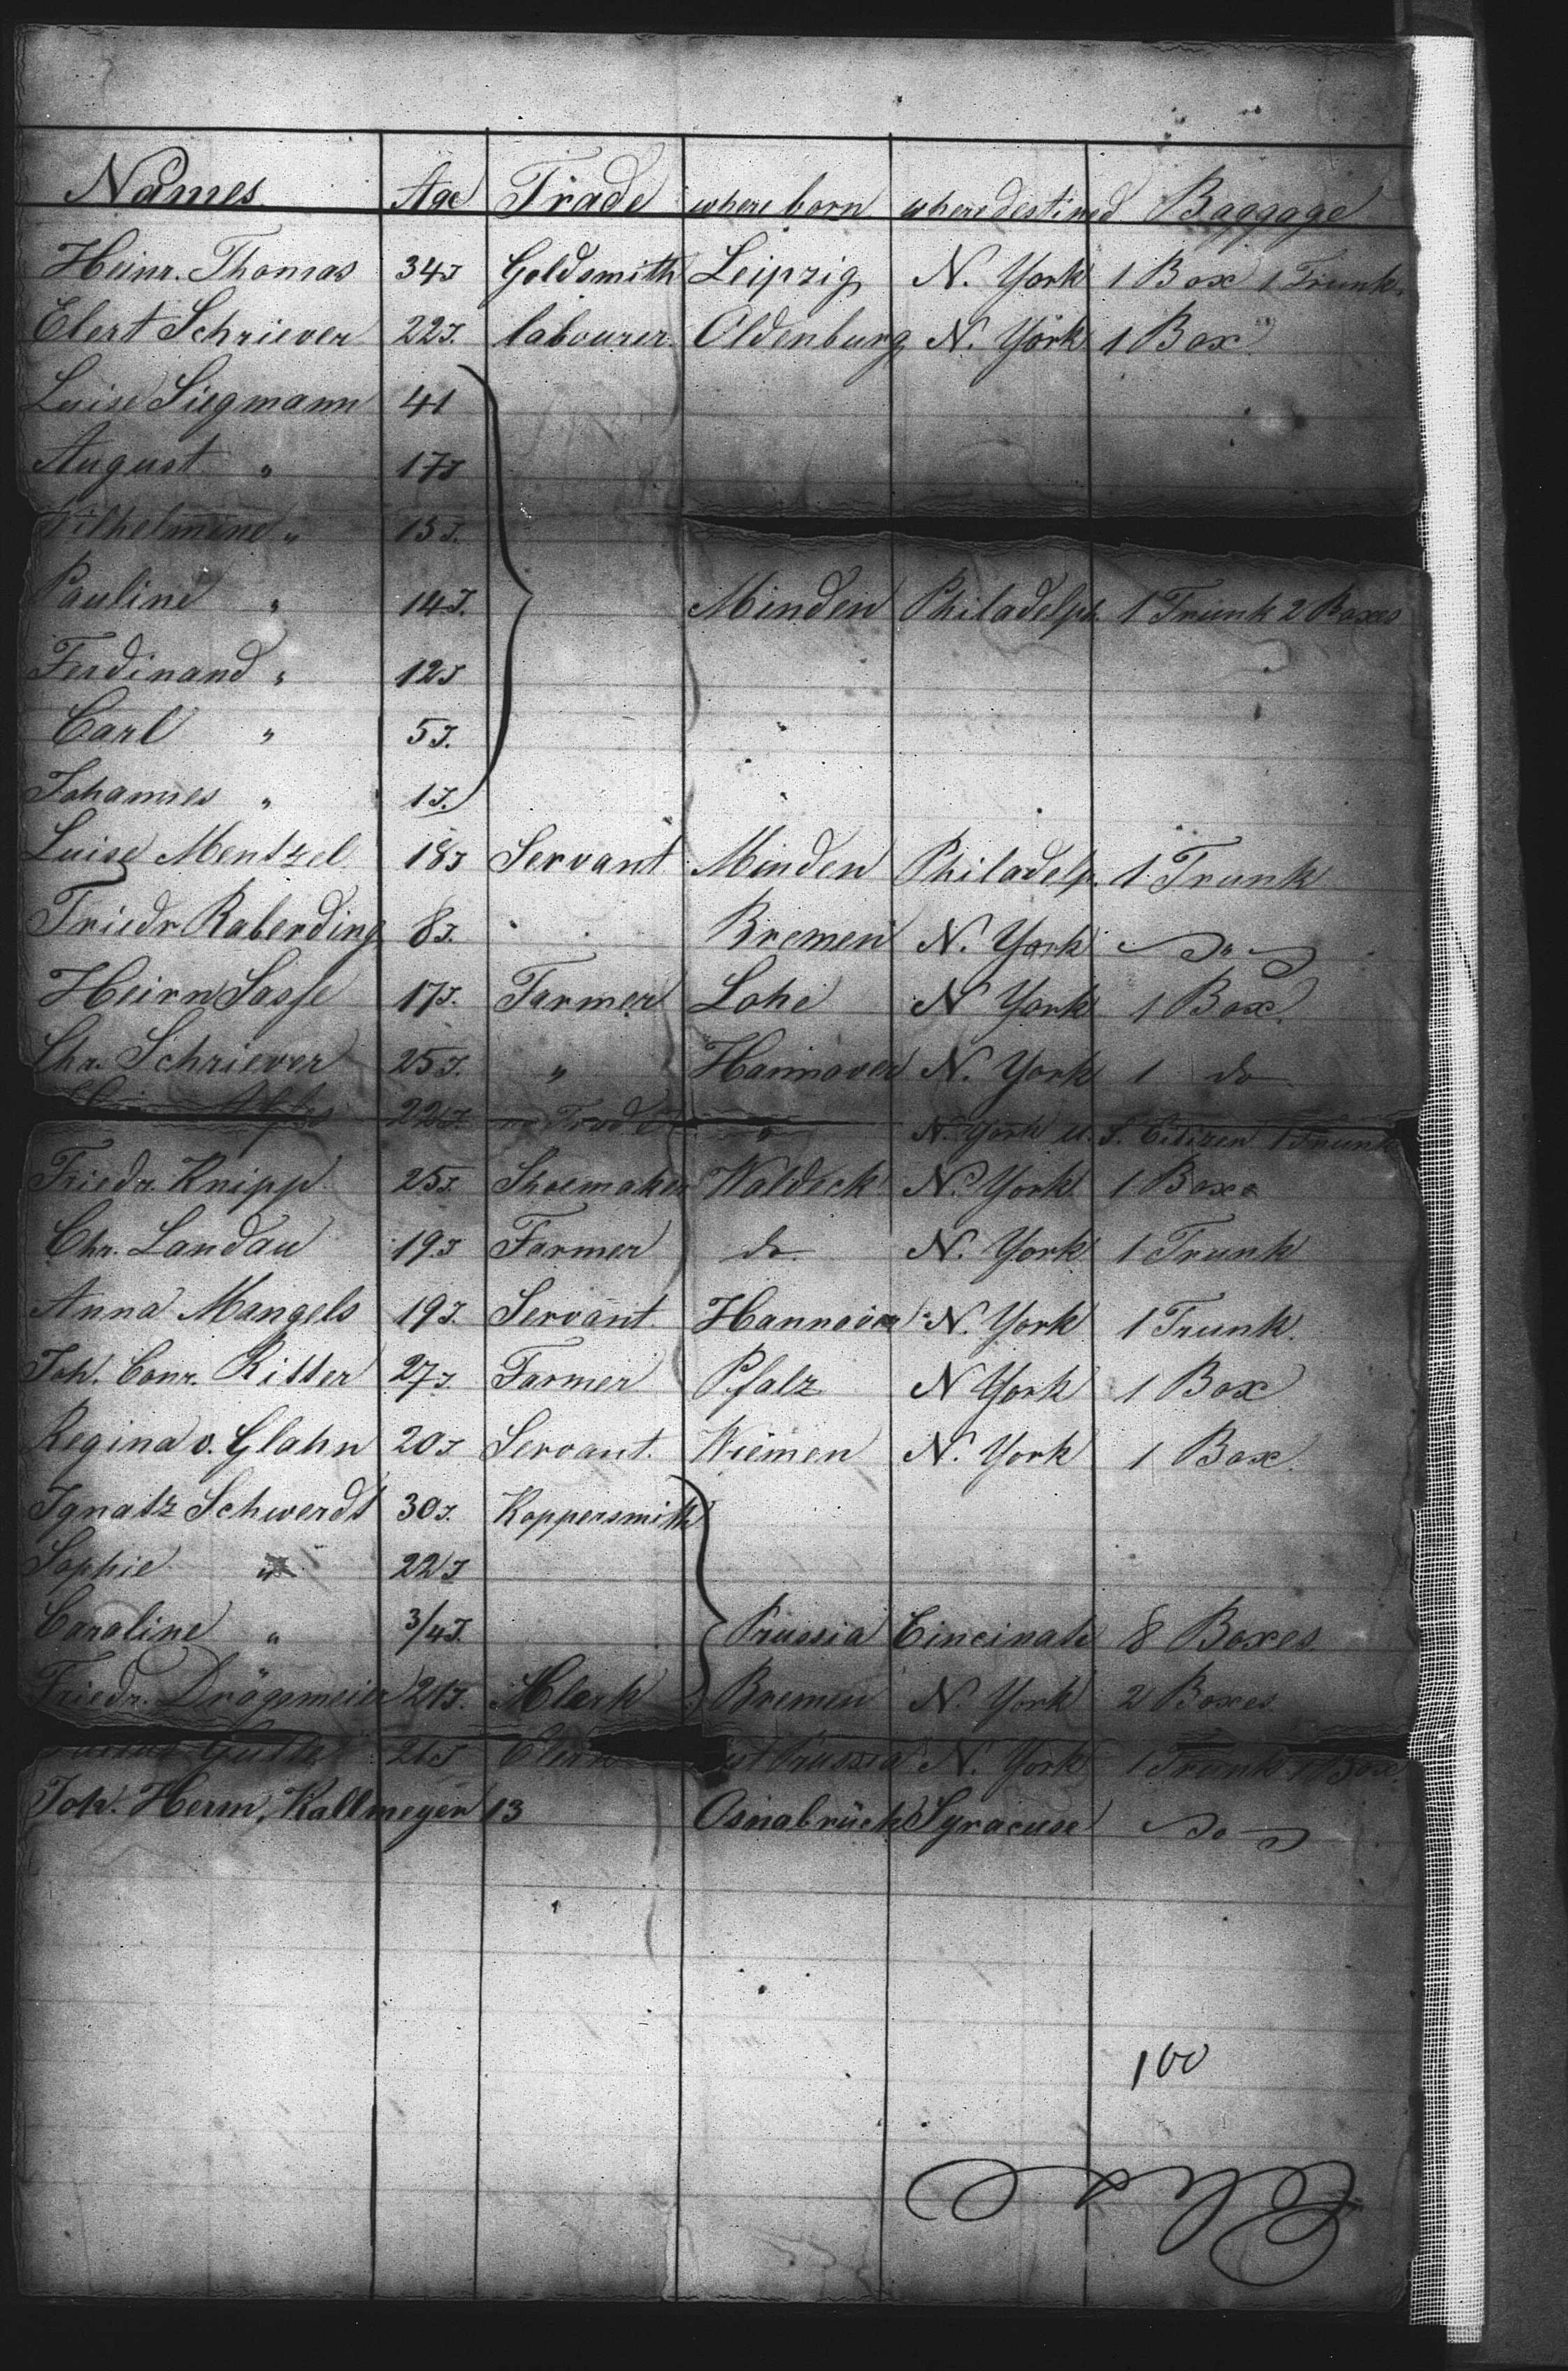 Names Age Trade where born where destined Baggage
Heinr. Thomas 34J Goldsmith Leipzig N. York 1 Box 1 Trunk
Elert Schriever 22J. labourer. Oldenburg N. York 1 Box
Luise Siegmann 41
August " 17J
Wilhelmine " 15J.
Pauline " 14J. Minden Philadelph. 1 Trunk 2 Boxes
Ferdinand " 12J
Carl " 5J.
Johannes " 1J.
Luise Mentzel 18J Servant Minden Philadelp. 1 Trunk
Friedr Raberding 8J. Bremen N. York do
Heirn Sasse 17J. Farmer Lohe N York 1 Box
Chr. Schriever 25J. " Hannover N. York 1 do
22J. no Trade N. York U. S. Citizen 1 Trunk
Friedr. Knipp 25J. Shoemaker Waldeck N. York 1 Box
Chr. Landau 19J Farmer do N. York 1 Trunk
Anna Mangels 19J. Servant Hannover N. York 1 Trunk.
Joh. Conr. Ritter 27J. Farmer Pfalz N York 1 Box
Regina v. Glahn 20J Servant. Wiemen N. York 1 Box
Ignatz Schwerdt 30J. Koppersmith
Sophie " 22J
Caroline " 3/4J. Prussia Cincinati 8 Boxes
Friedr. Drögemeier 21J. Klerk Bremen N. York 2 Boxes
26J Clerk Prussia N. York 1 Trunk 1 Box
Joh. Herm. Kallmeyer 13 Osnabrück Syracuse do
100